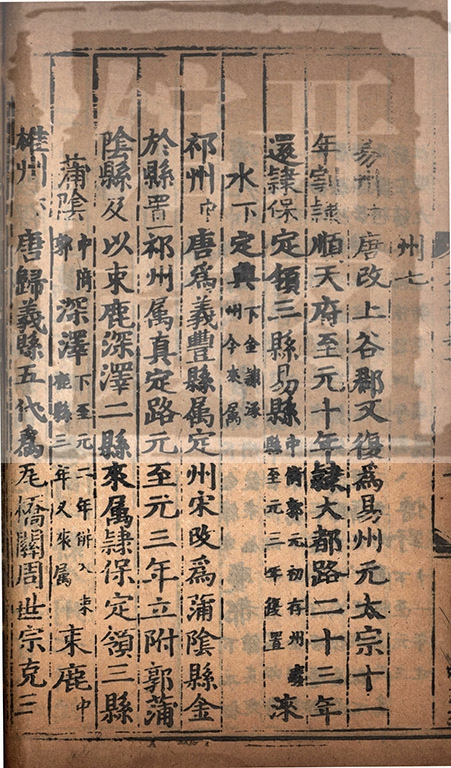 州七
易州中唐改上谷郡又復爲易州元太宗十一
年割隸順天府至元十年隸大都路二十三年
還隸保定領三縣易縣中倚郭元初存州廢縣至元三年復置淶
水下定興下金隸涿州今來属
祁州中唐爲義豐縣属定州宋改爲蒲陰縣金
於縣置祁州属真定路元至元三年立附郭蒲
陰縣及以束鹿深澤二縣來属隸保定領三縣
蒲陰中倚郭深澤下至元二年併入束鹿縣三年又來属束鹿中
雄州下唐歸義縣五代爲瓦橋關周世宗克三